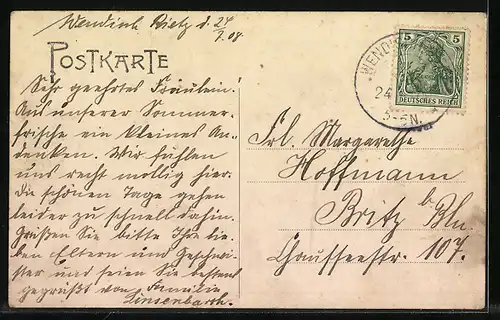 Wendisch Rietz d. 24
7.08
POSTKARTE
Sehr geehrtes Fräulein!
Aus unserer Sommer-
frische ein kleines An-
denken. Wir fühlen
uns recht mollig hier.
die schönen Tage gehen
leider zu schnell dahin.
Grüßen Sie bitte Ihre lie-
ben Eltern und Geschwi-
ster und seien Sie bestens
gegrüßt von Familie
Linsenbarth.
WEND
24
5-6N.
5 5
DEUTSCHES REICH
Frl. Margarethe
Hoffmann
Britz b. Bln.
Chausseestr. 107.